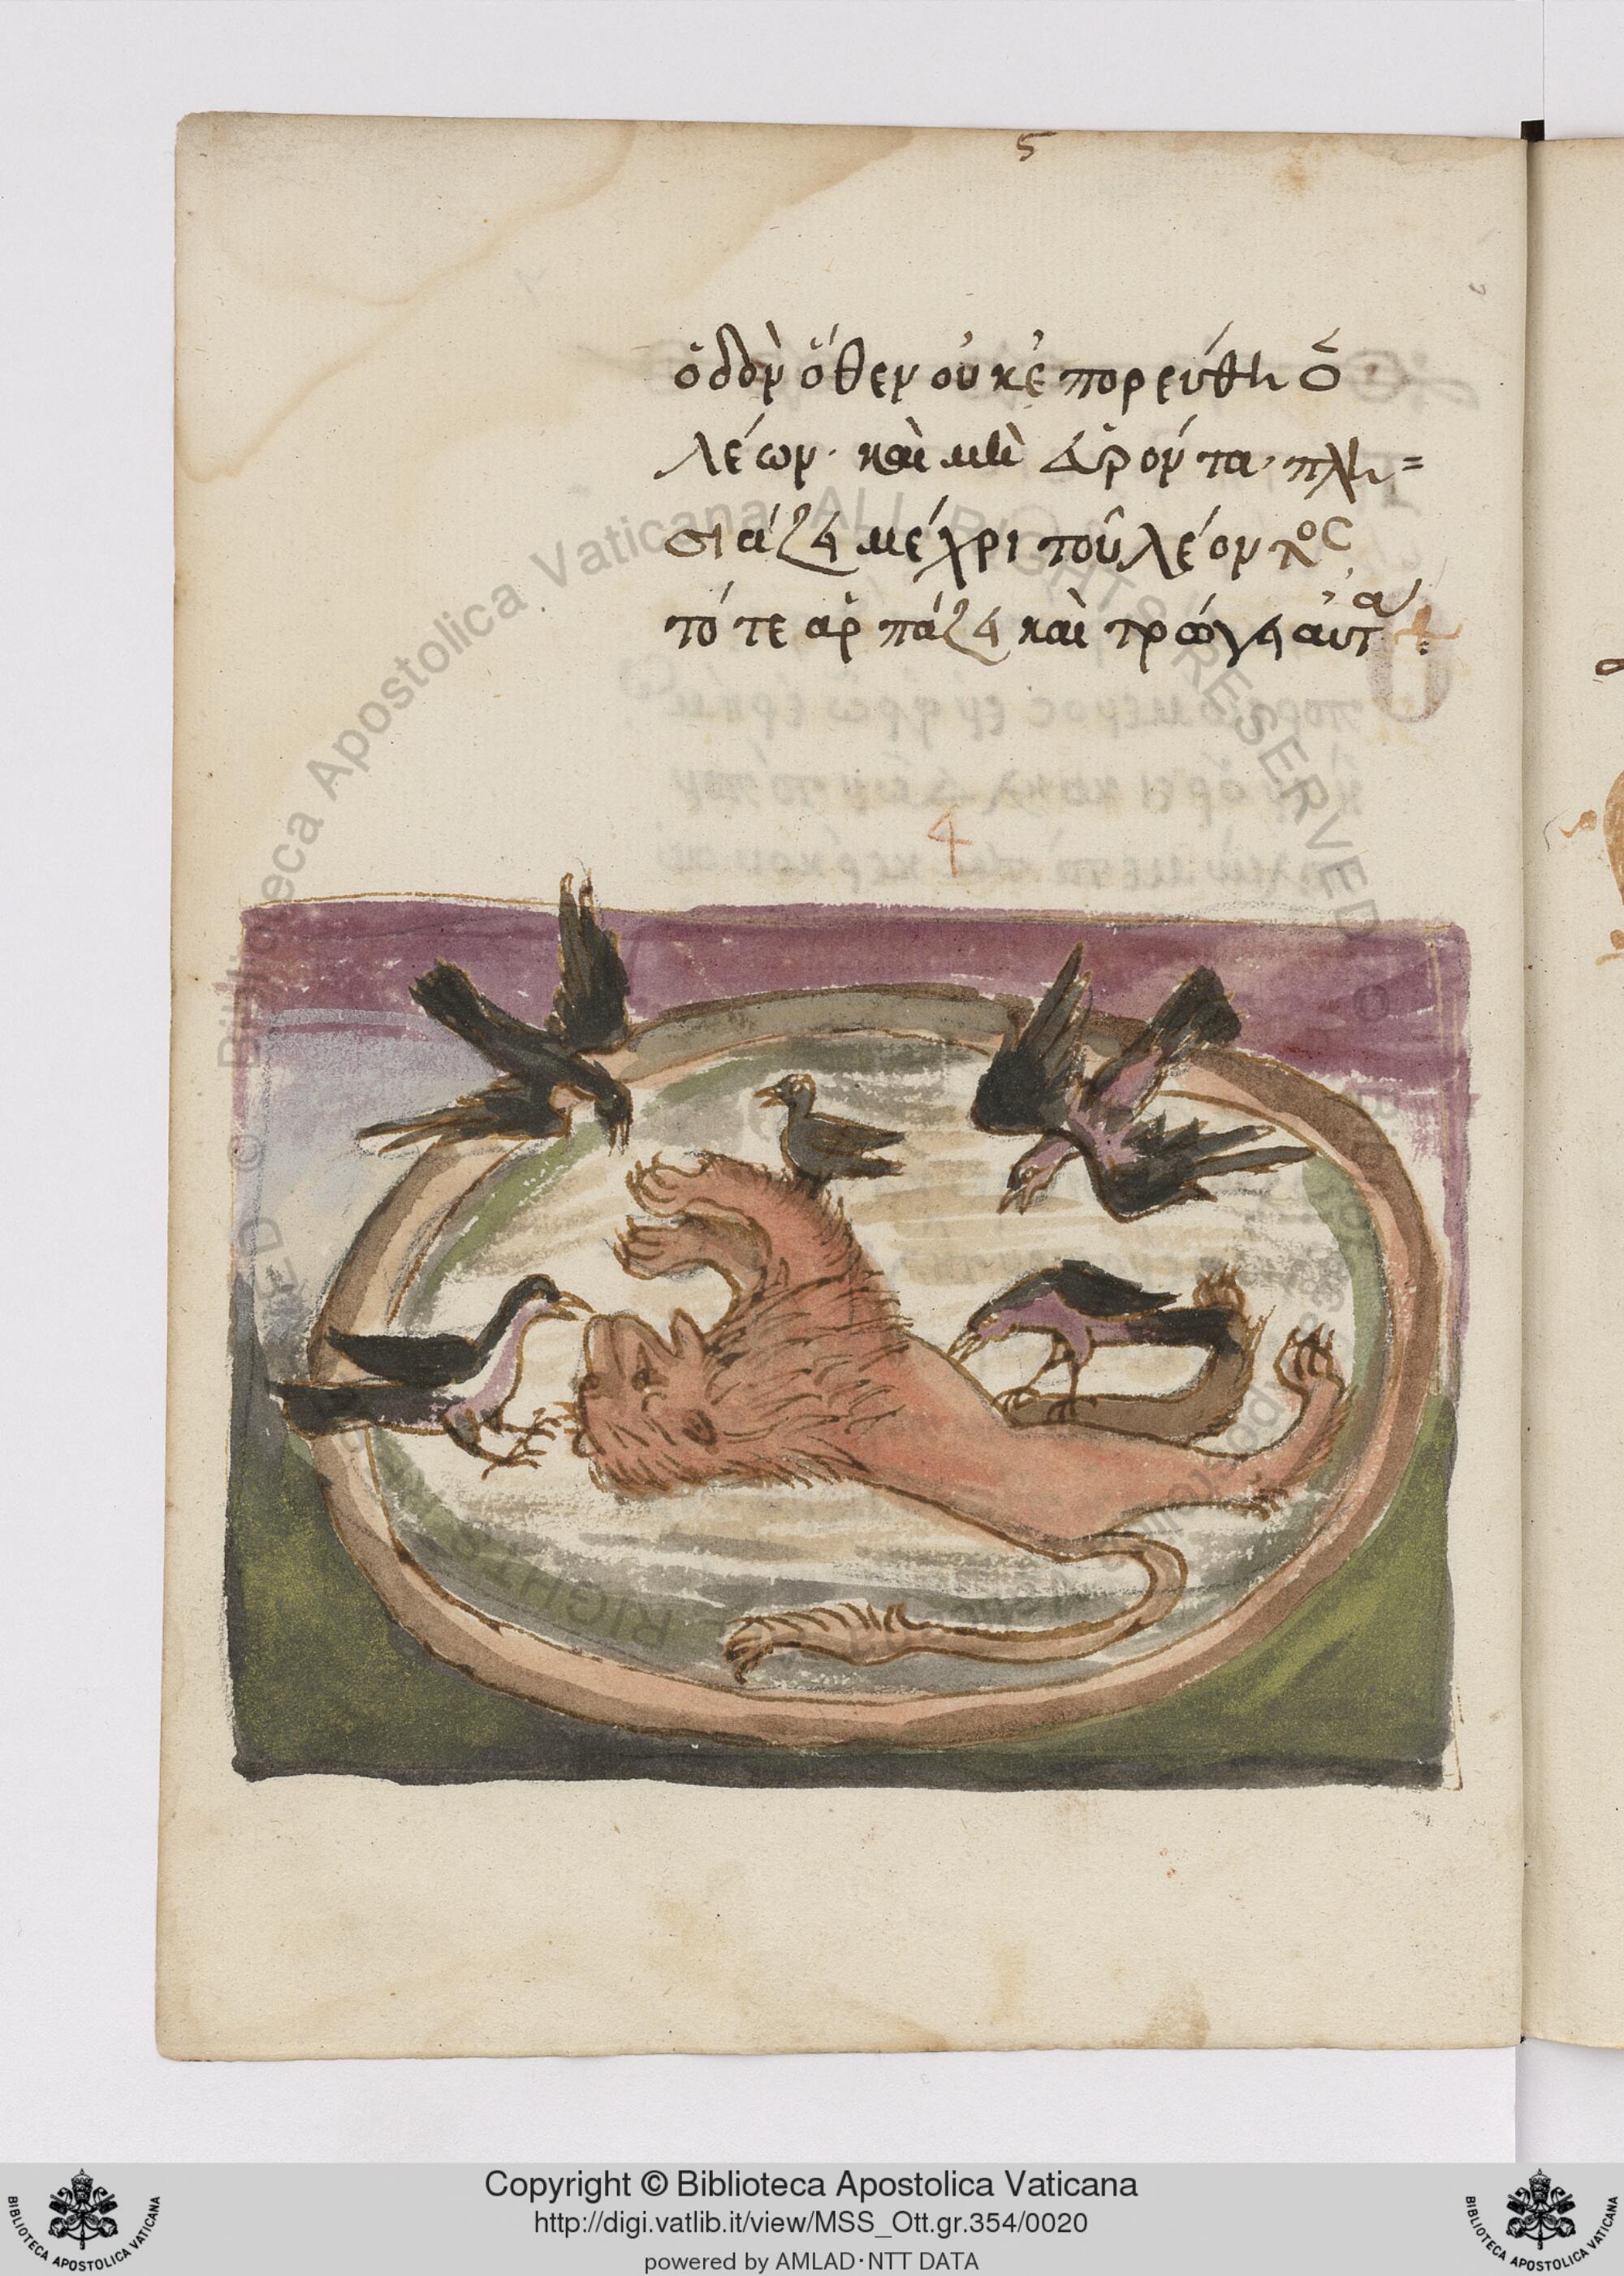 ς
ὁδὸν ὅθεν οὐκ ἐπορεύθη ὁ
λέων. καὶ μὴ εὑρόντα πλη=
σιάζει μέχρι τοῦ λέοντος
τότε ἁρπάζει καὶ τρώγει αὐτά
4
Copyright © Biblioteca Apostolica Vaticana
http://digi.vatlib.it/view/MSS_Ott.gr.354/0020
powered by AMLAD·NTT DATA
BIBLIOTECA APOSTOLICA VATICANA
BIBLIOTECA APOSTOLICA VATICANA